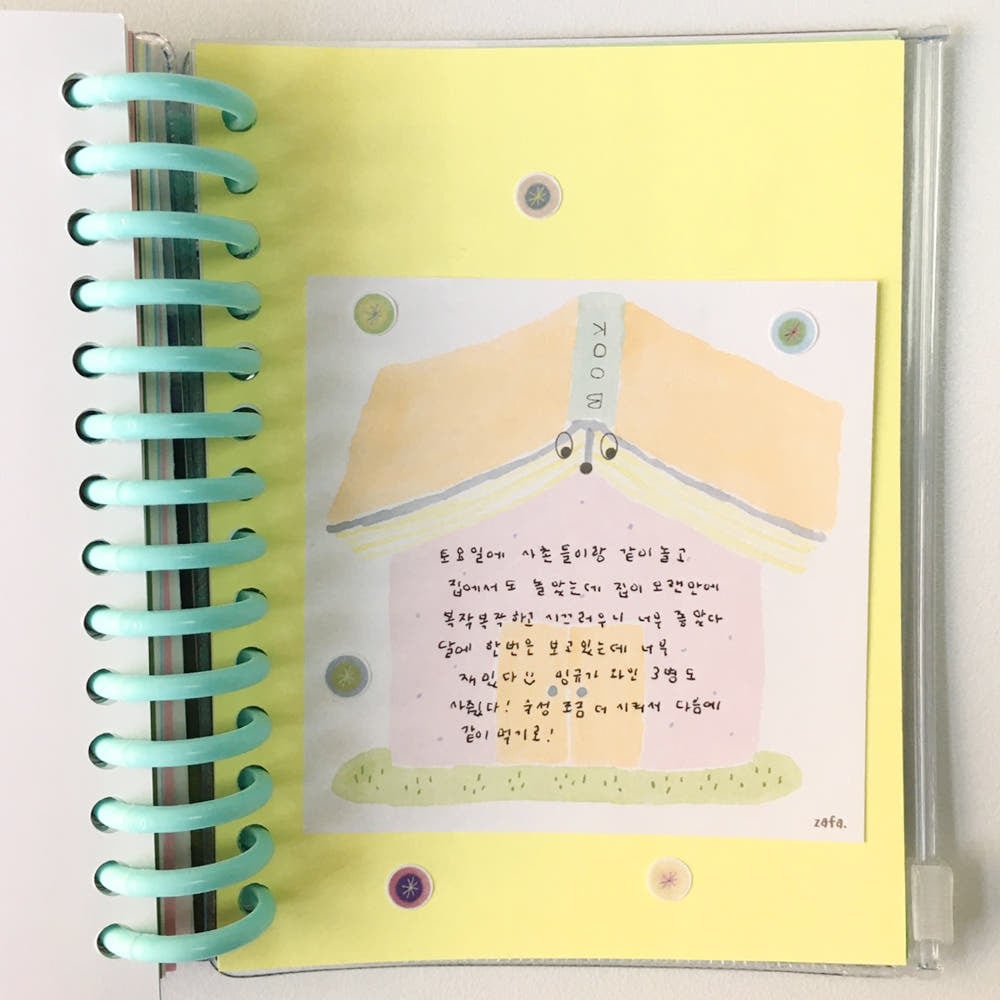 BOOK
토요일에 사촌들이랑 같이 놀고
집에서도 놀았는데 집이 오랜만에
복작복작하고 시끄러우니 너무 좋았다
달에 한번은 보고있는데 너무
재밌다 밍규가 와인 3병도
사줬다! 숙성 조금 더 시켜서 다음에
같이 먹기로!
zafa.